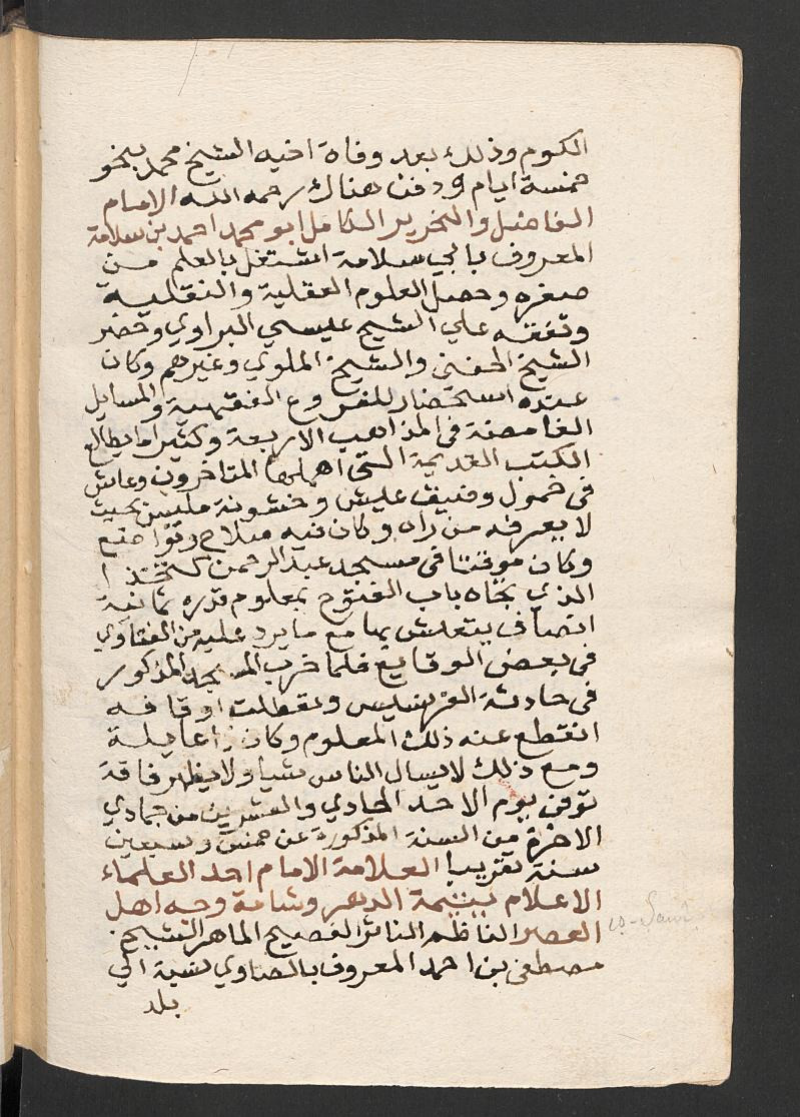 الكوم وذلك بعد وفاة اخيه الشيخ محمد بنحو
خمسة ايام ودفن هناك رحمه الله الامام
الفاضل والنحرير الكامل ابو محمد احمد بن سلامة
المعروف بابي سلامة اشتغل بالعلم من
صغره وحصل العلوم العقلية والنقلية
وتفقه علي الشيخ عيسي البراوي وحضر
الشيخ الحفني والشيخ الملوي وغيرهم وكان
عنده استحضار للفروع الفقهية والمسايل
الغامضة في المذاهب الاربعة وكثيرا ما يطالع
الكتب القديمة التي اهملها المتاخرون وعاش
في خمول وضيق عليش وخشونة ملبس بحيث
لا يعرفه من راه وكان فيه صلاح وتواضع
وكان موقتا في مسجد عبد الرحمن كتخدا
الذي تجاه باب الفتوح بمعلوم قدره ثمانية
انصاف يتعلش بها مع ما يرد عليه من الفتاوي
في بعض الوقايع فلما خرب المسجد المذكور
في حادثة الفرنسيس وتعطلت اوقافه
انقطع عنه ذلك المعلوم وكان ذا عايلة
ومع ذلك لا يسال الناس شيا ولا يظهر فاقة
توفى يوم الاحد الحادي والعشرين من جمادي
الاخرة من السنة المذكورة عن خمس وسبعين
سنة تقريبا العلامة الامام احد العلماء
الاعلام يتيمة الدهر وشامة وجه اهل
العصر الناظم الناثر الفصيح الماهر الشيخ
مصطفى بن احمد المعروف بالصاوي نسبة الي
بلد